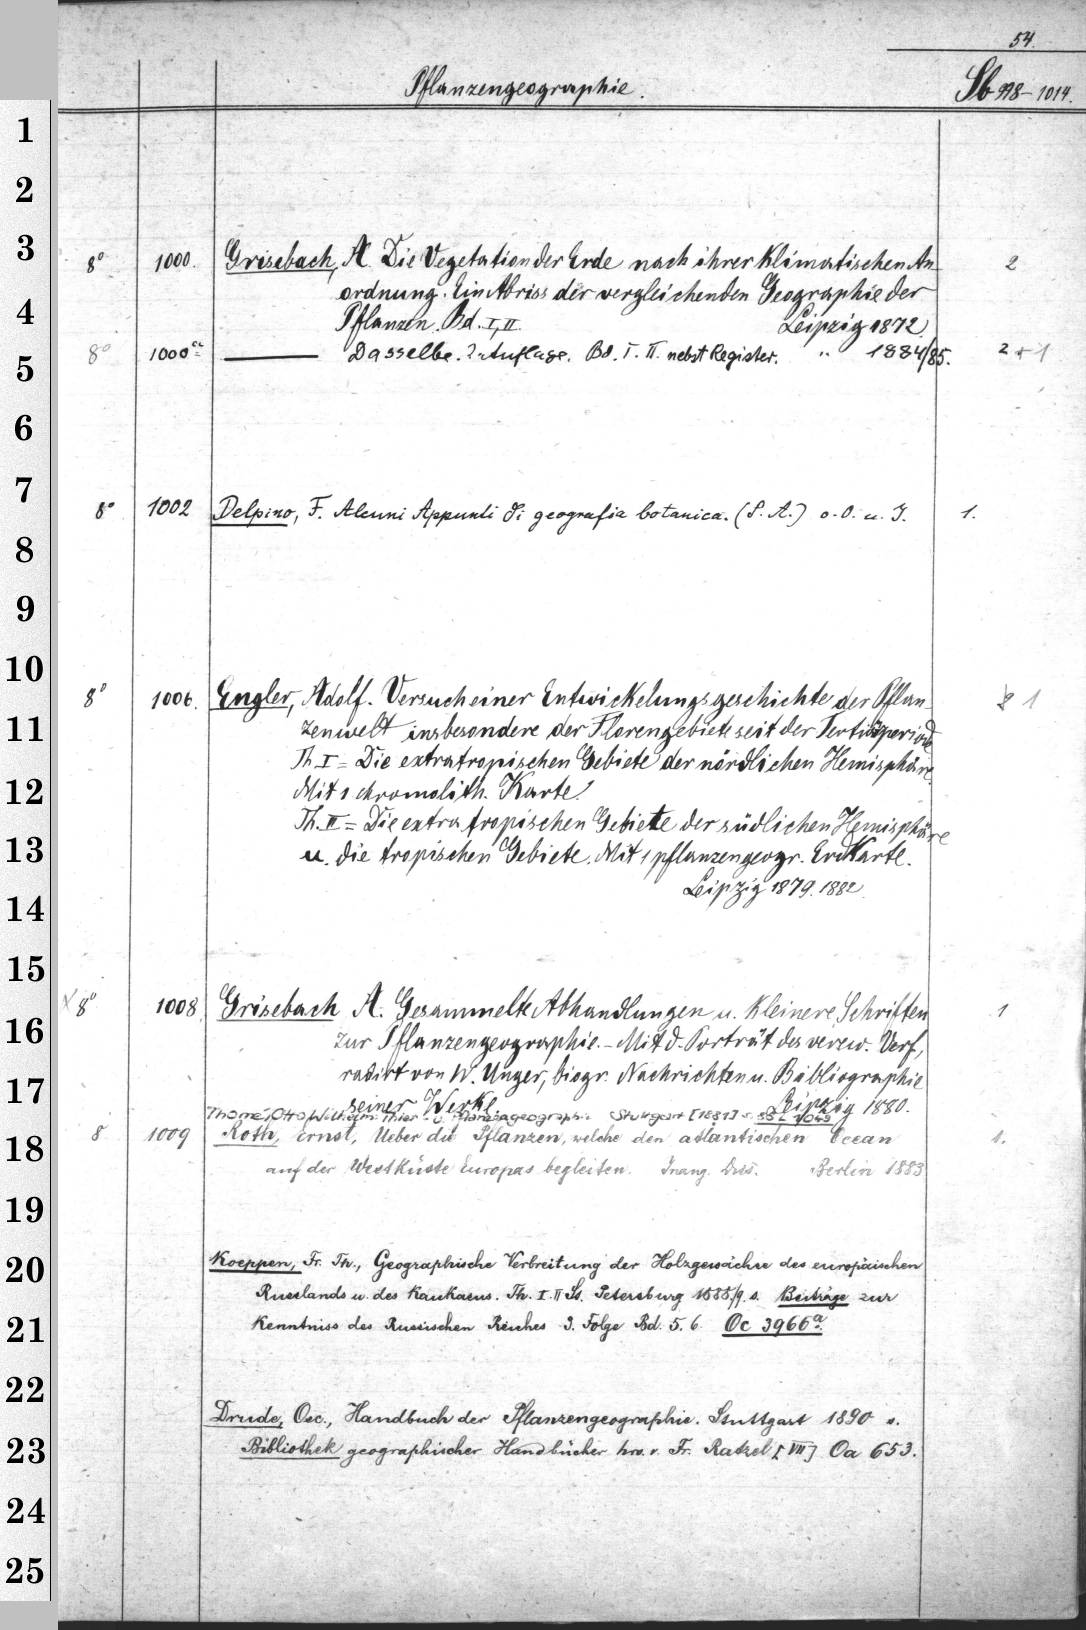 54.
Pflanzengeographie. Sb 998-1014.
1
2
3
4
5
6
7
8
9
10
11
12
13
14
15
16
17
18
19
20
21
22
23
24
25
8° 1000. Grisebach, A. Die Vegetation der Erde nach ihrer Klimatischen An- 2
ordnung. Ein Abriss der vergleichenden Geographie der
Pflanzen. Bd. I, II. Leipzig 1872
8° 1000a ——— Dasselbe. 2te Auflage. Bd. I. II. nebst Register. " 1884/85. 2 + 1
8° 1002 Delpino, F. Alcuni Appunti di geografia botanica. (S. A.) o. O. u. J. 1.
8° 1006. Engler, Adolf. Versuch einer Entwickelungsgeschichte der Pflan- 1
zenwelt insbesondere der Florengebiete seit der Tertiärperiode
Th. I = Die extratropischen Gebiete der nördlichen Hemisphäre
Mit 1 chromolith. Karte.
Th. II = Die extratropischen Gebiete der südlichen Hemisphäre
u. die tropischen Gebiete. Mit 1 pflanzengeogr. ErdKarte.
Leipzig 1879. 1882.
8° 1008. Grisebach A. Gesammelte Abhandlungen u. Kleinere Schriften 1
zur Pflanzengeographie. - Mit d. Porträt des verew. Verf.,
radirt von W. Unger, biogr. Nachrichten u. Bibliographie
seiner Werke. Leipzig 1880.
Thomé, Otto Wilhelm: Thier- u. Pflanzengeographie Stuttgart [1881] s. Sb L 1043
8 1009 Roth, Ernst, Ueber die Pflanzen, welche den atlantischen Ocean 1.
auf der Westküste Europas begleiten. Inaug. Diss. Berlin 1883
Koeppen, Fr. Th., Geographische Verbreitung der Holzgewächse des europäischen
Russlands u. des Kaukasus. Th. I. II St. Petersburg 1888/9. s. Beiträge zur
Kenntniss des Russischen Reiches 3. Folge Bd. 5. 6. Oc 3966a.
Drude, Osc., Handbuch der Pflanzengeographie. Stuttgart 1890 s.
Bibliothek geographischer Handbücher hrs. v. Fr. Ratzel [VII] Oa 653.